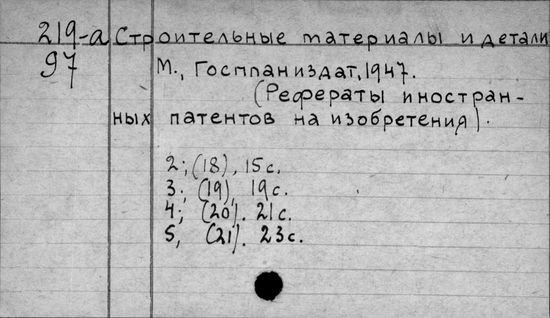 219-а Строительные материалы и детали
97 М., Госппаниздат, 1947.
(Рефераты иностран-
ных патентов на изобретения).
2; (18), 15с.
3; (19), 19с.
4; (20). 21с.
5, (21). 23с.